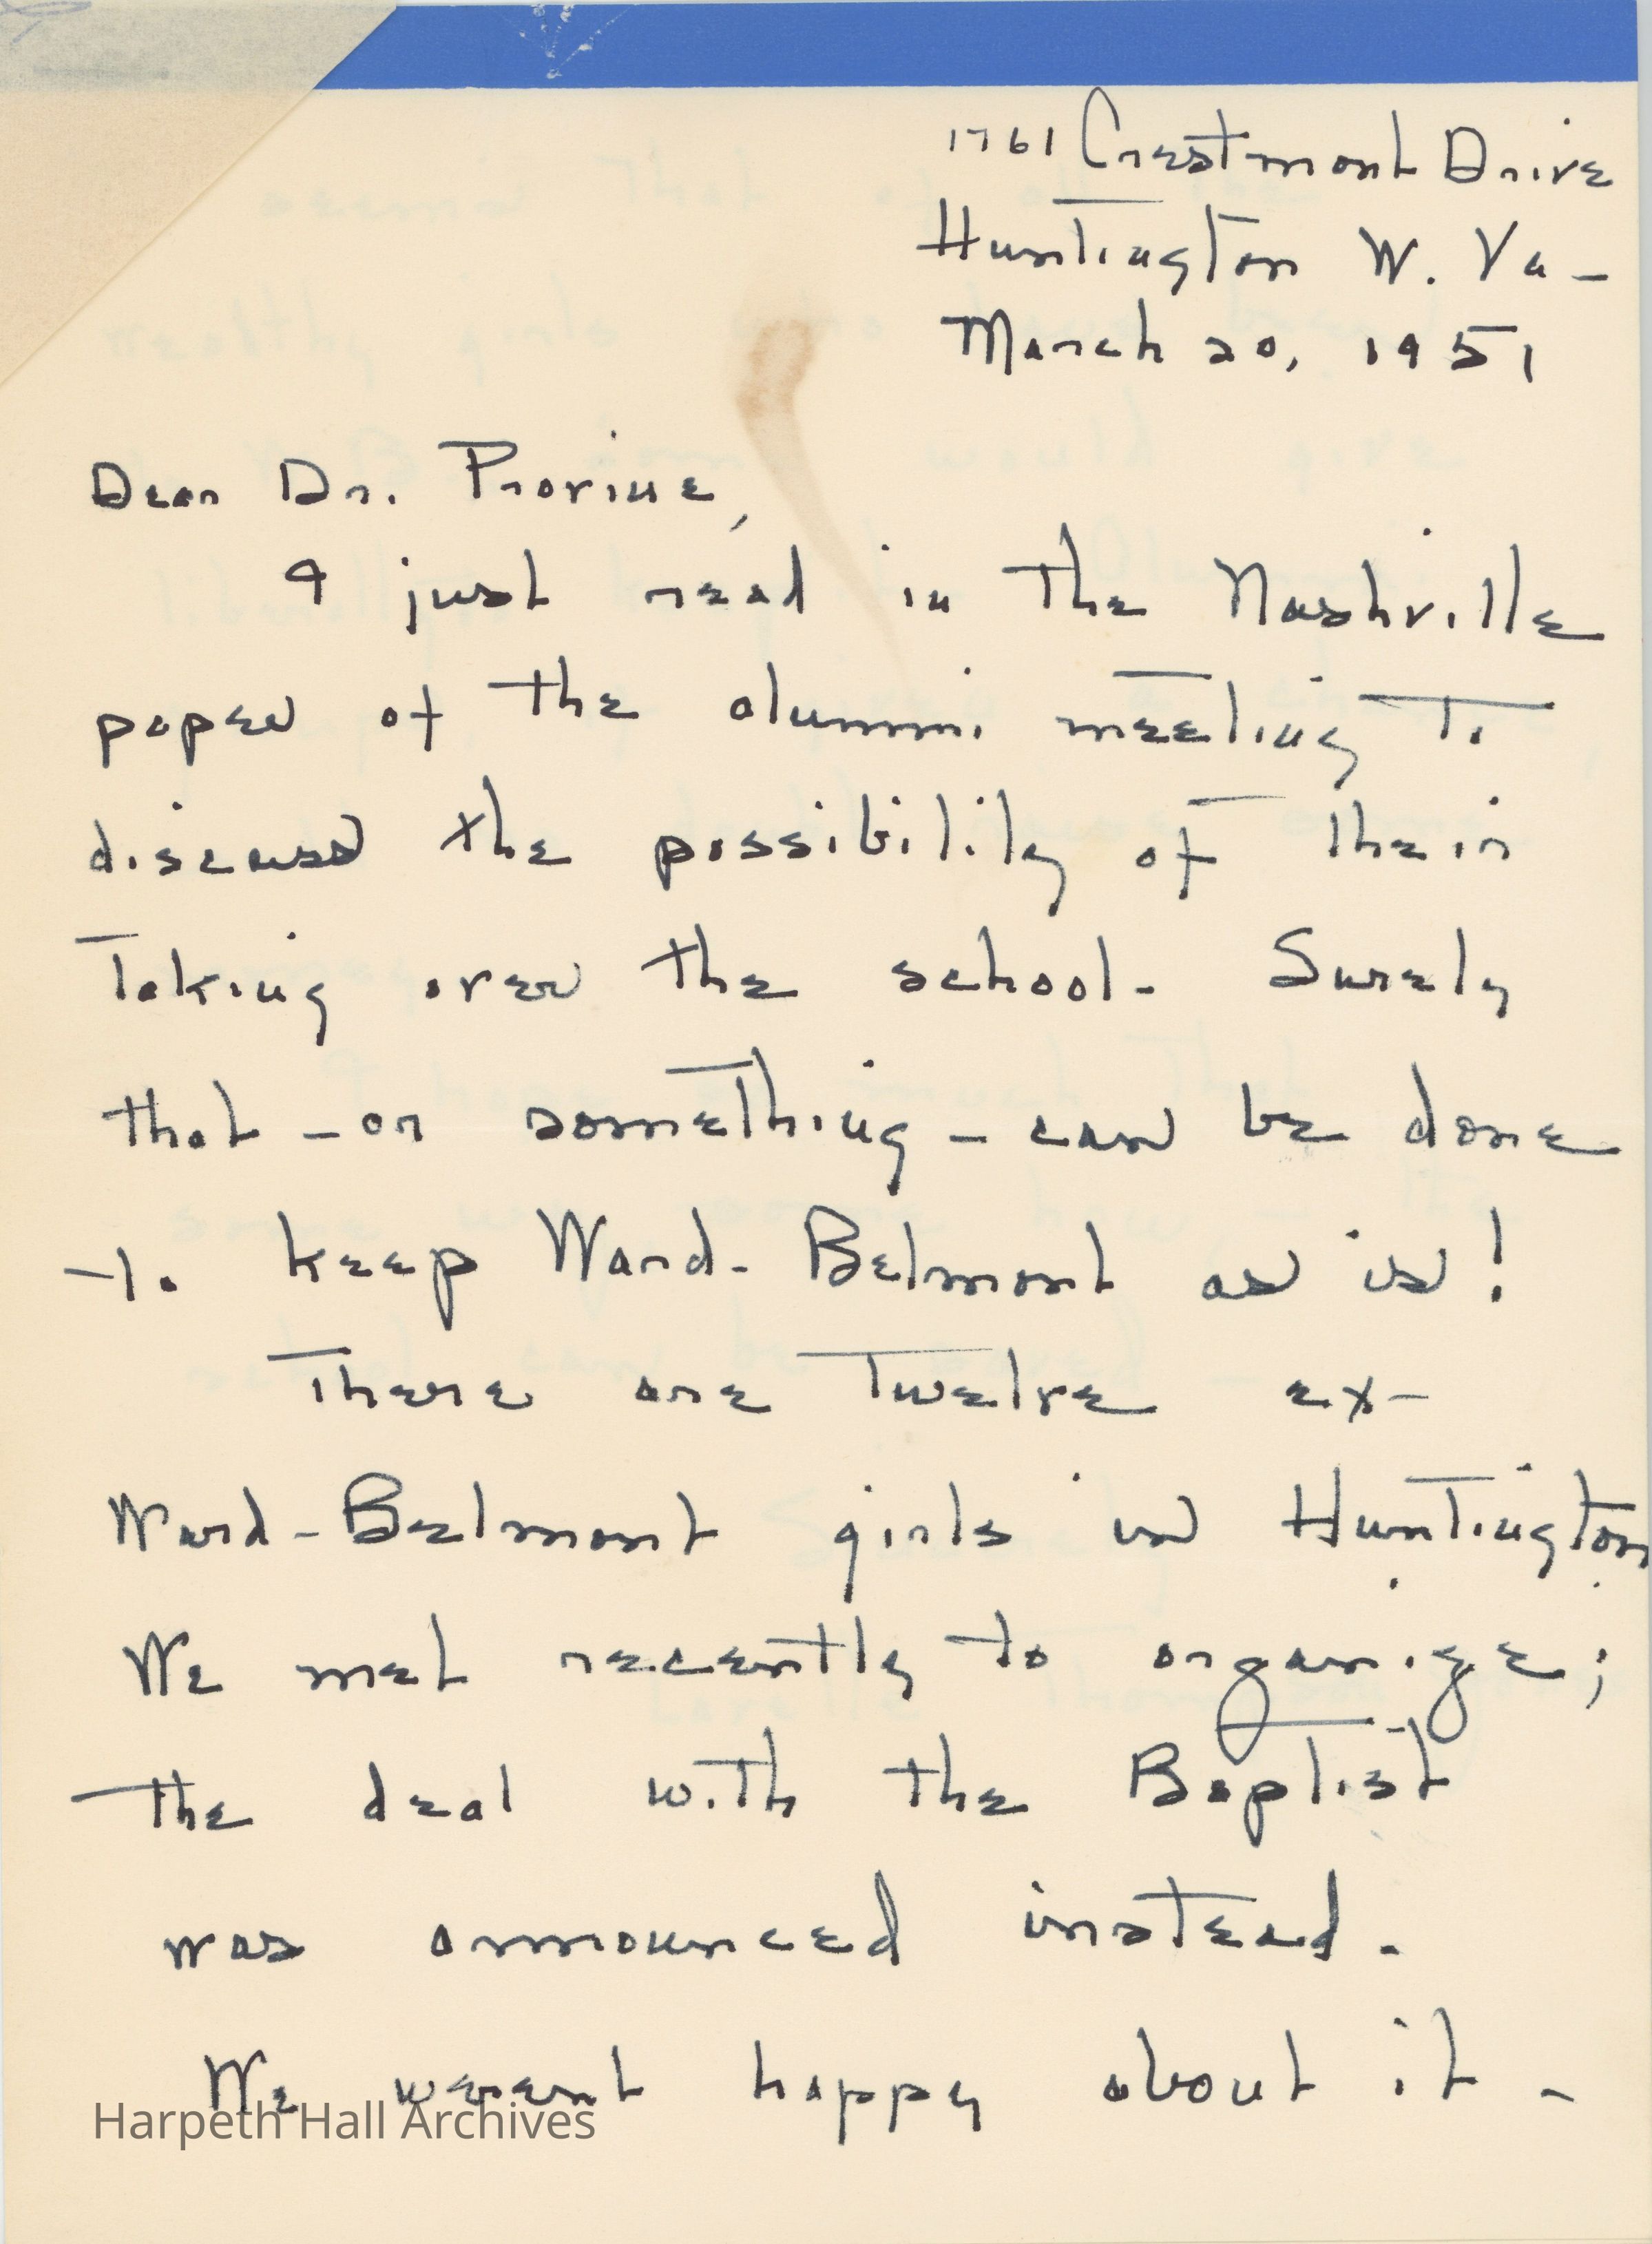 1761 Crestmont Drive
Huntington W. Va -
March 20, 1951
Dear Dr. Provine,
I just read in the Nashville
paper of the alumni meeting to
discuss the possibility of their
taking over the school. Surely
that - or something - can be done
to keep Ward-Belmont as is!
There are twelve ex-
Ward-Belmont girls in Huntington.
We met recently to organize;
the deal with the Baptist
was announced instead.
We weren't happy about it -
Harpeth Hall Archives